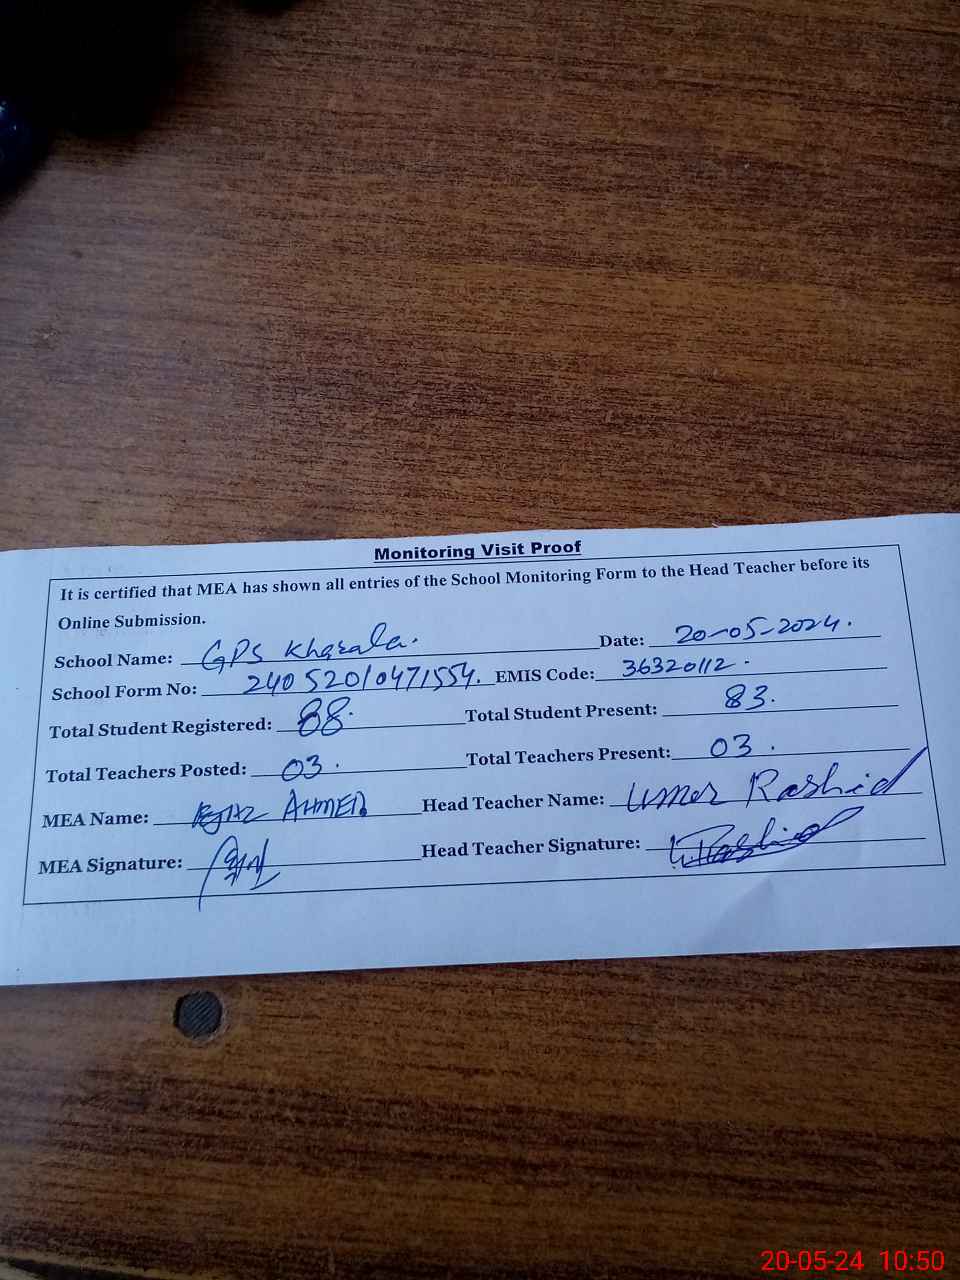 Monitoring Visit Proof
It is certified that MEA has shown all entries of the School Monitoring Form to the Head Teacher before its
Online Submission.
School Name: GPS Kharala. Date: 20-05-2024.
School Form No: 24052010471554. EMIS Code: 36320112.
Total Student Registered: 88. Total Student Present: 83.
Total Teachers Posted: 03. Total Teachers Present: 03.
MEA Name: AHMED Head Teacher Name: Umer Rashid
MEA Signature: Head Teacher Signature: Rashid
20-05-24 10:50